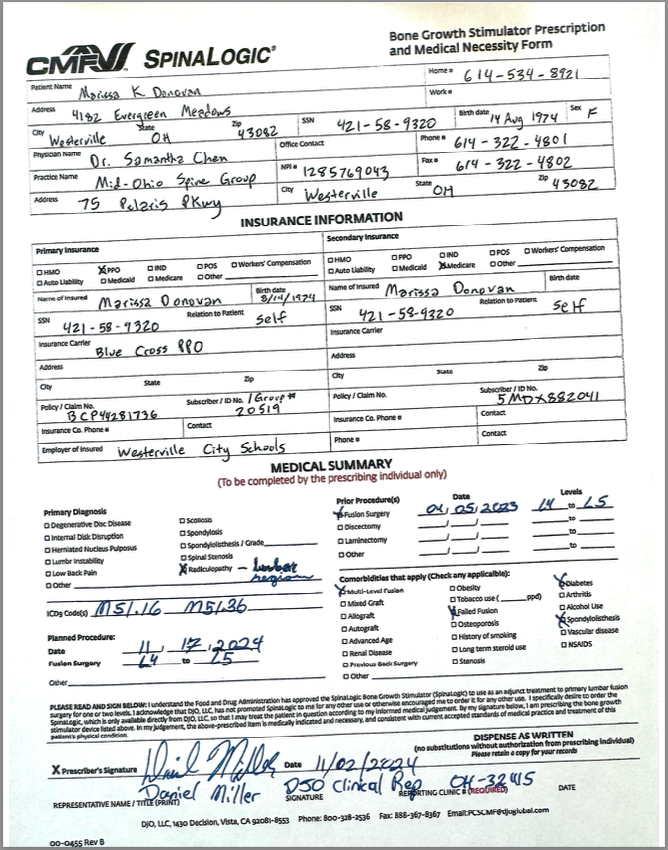 CMF SPINALOGIC®
Bone Growth Stimulator Prescription
and Medical Necessity Form
Patient Name Marissa K Donovan Home # 614-534-8921
Work #
Address 4182 Evergreen Meadows
City Westerville State OH Zip 43082 SSN 421-58-9320 Birth date 14 Aug 1974 Sex F
Physician Name Dr. Samantha Chen Office Contact Phone # 614-322-4801
Practice Name Mid-Ohio Spine Group NPI # 1285769043 Fax # 614-322-4802
Address 75 Polaris PKwy City Westerville State OH Zip 43082
INSURANCE INFORMATION
Primary Insurance
☐ HMO ☒ PPO ☐ IND ☐ POS ☐ Workers' Compensation
☐ Auto Liability ☐ Medicaid ☐ Medicare ☐ Other
Name of Insured Marissa Donovan Birth date 8/14/1974
SSN 421-58-9320 Relation to Patient self
Insurance Carrier Blue Cross PPO
Address
City State Zip
Policy / Claim No. BCP44281736 Subscriber / ID No. / Group # 20519
Insurance Co. Phone # Contact
Employer of Insured Westerville City Schools
Secondary Insurance
☐ HMO ☐ PPO ☐ IND ☐ POS ☐ Workers' Compensation
☐ Auto Liability ☐ Medicaid ☒ Medicare ☐ Other
Name of Insured Marissa Donovan Birth date
SSN 421-58-9320 Relation to Patient self
Insurance Carrier
Address
City State Zip
Policy / Claim No. Subscriber / ID No. 5MDX882041
Insurance Co. Phone # Contact
Phone # Contact
MEDICAL SUMMARY
(To be completed by the prescribing individual only)
Primary Diagnosis
☐ Degenerative Disc Disease ☐ Scoliosis
☐ Internal Disk Disruption ☐ Spondylosis
☐ Herniated Nucleus Pulposus ☐ Spondylolisthesis / Grade
☐ Lumbr Instability ☐ Spinal Stenosis
☐ Low Back Pain ☒ Radiculopathy - lumbar region
☐ Other
ICD9 Code(s) M51.16 M51.36
Planned Procedure:
Date 11, 17, 2024
Fusion Surgery L4 to L5
Other
Prior Procedure(s) Date Levels
☒ Fusion Surgery 04, 05, 2023 L4 to L5
☐ Discectomy / / to
☐ Laminectomy / / to
☐ Other / / to
Comorbidities that apply (Check any applicaible):
☒ Multi-Level Fusion ☐ Obesity ☒ Diabetes
☐ Mixed Graft ☐ Tobacco use ( ppd) ☐ Arthritis
☐ Allograft ☒ Failed Fusion ☐ Alcohol Use
☐ Autograft ☐ Osteoporosis ☒ Spondylolisthesis
☐ Advanced Age ☐ History of smoking ☐ Vascular disease
☐ Renal Disease ☐ Long term steroid use ☐ NSAIDS
☐ Previous Back Surgery ☐ Stenosis
☐ Other
PLEASE READ AND SIGN BELOW: I understand the Food and Drug Administration has approved the SpinaLogic Bone Growth Stimulator (SpinaLogic) to use as an adjunct treatment to primary lumbar fusion
surgery for one or two levels. I acknowledge that DJO, LLC, has not promoted SpinaLogic to me for any other use or otherwise encouraged me to order it for any other use. I specifically desire to order the
SpinaLogic, which is only available directly from DJO, LLC, so that I may treat the patient in question according to my informed medical judgement. By my signature below, I am prescribing the bone growth
stimulator device listed above. In my judgement, the above-prescribed item is medically indicated and necessary, and consistent with current accepted standards of medical practice and treatment of this
patient's physical condition.
DISPENSE AS WRITTEN
(no substitutions without authorization from prescribing individual)
Please retain a copy for your records
X Prescriber's Signature Daniel Miller Date 11/02/2024
Daniel Miller DJO Clinical Rep
REPRESENTATIVE NAME / TITLE (PRINT) SIGNATURE REPORTING CLINIC # (REQUIRED) DATE
DJO, LLC, 1430 Decision, Vista, CA 92081-8553 Phone: 800-328-2536 Fax: 888-367-8367 Email:PCSCMF@djoglobal.com
00-0455 Rev B